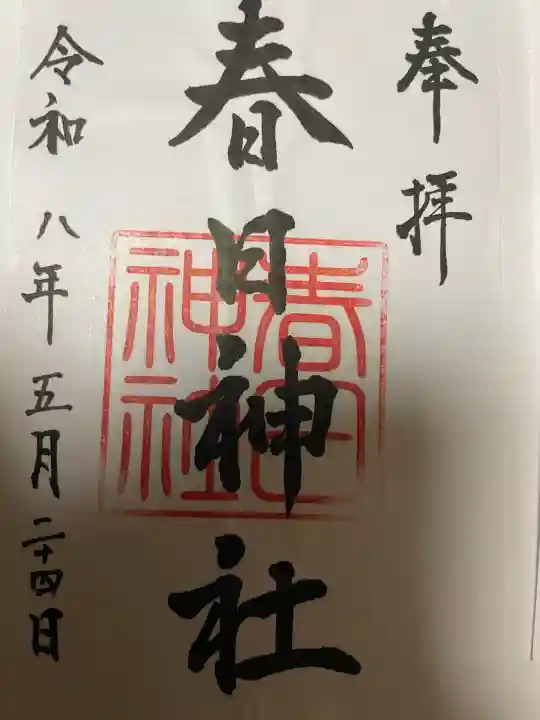 奉拝
春日神社
春日神社
令和八年五月二十四日